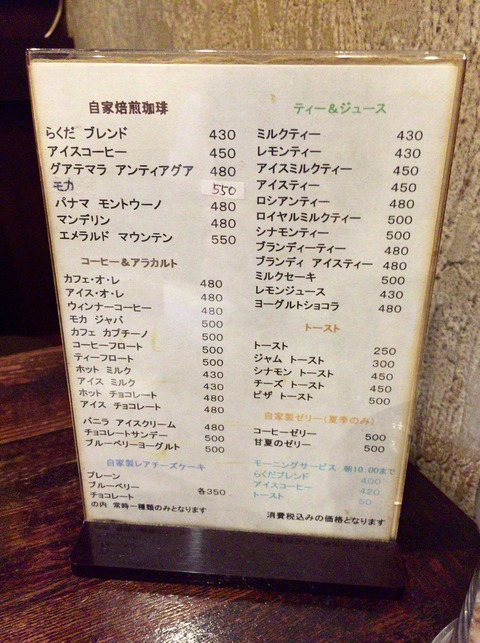 自家焙煎珈琲
らくだ ブレンド 430
アイスコーヒー 450
グアテマラ アンティアグア 480
モカ 550
パナマ モントウーノ 480
マンデリン 480
エメラルド マウンテン 550
コーヒー&アラカルト
カフェ・オ・レ 480
アイス・オ・レ 480
ウィンナーコーヒー 480
モカ ジャバ 500
カフェ カプチーノ 500
コーヒーフロート 500
ティーフロート 500
ホット ミルク 430
アイス ミルク 430
ホット チョコレート 480
アイス チョコレート 480
バニラ アイスクリーム 480
チョコレートサンデー 500
ブルーベリーヨーグルト 500
自家製レアチーズケーキ
プレーン
ブルーベリー 各350
チョコレート
の内 常時一種類のみとなります
ティー&ジュース
ミルクティー 430
レモンティー 430
アイスミルクティー 450
アイスティー 450
ロシアンティー 480
ロイヤルミルクティー 500
シナモンティー 500
ブランディーティー 480
ブランディ アイスティー 480
ミルクセーキ 500
レモンジュース 430
ヨーグルトショコラ 480
トースト
トースト 250
ジャム トースト 300
シナモン トースト 450
チーズ トースト 450
ピザ トースト 500
自家製ゼリー(夏季のみ)
コーヒーゼリー 500
甘夏のゼリー 500
モーニングサービス 朝10:00まで
らくだブレンド 400
アイスコーヒー 420
トースト 50
消費税込みの価格となります